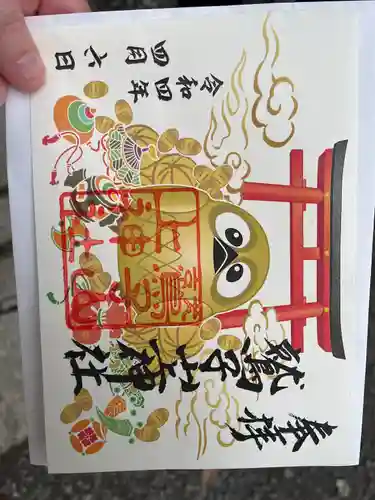 奉拝
鷲子山上神社
令和四年
四月六日